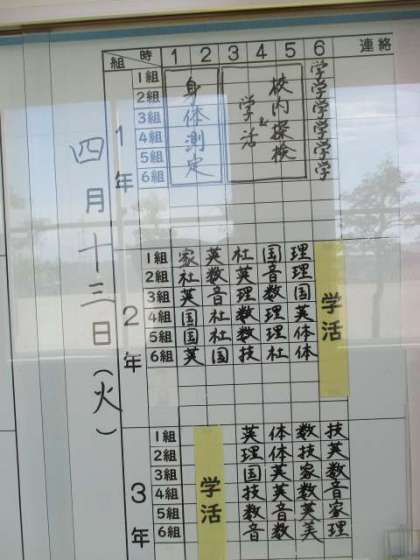 四月十三日(火)
組 時 1 2 3 4 5 6 連絡
1年
1組 身体測定 校内探検&学活 学
2組 学
3組 学
4組 学
5組 学
6組 学
2年
1組 家 英 社 国 理 学活
2組 社 数 英 音 理
3組 英 音 理 数 国
4組 国 社 数 理 英
5組 国 社 数 理 体
6組 英 国 技 社 体
3年
1組 学活 英 体 数 技
2組 理 体 技 英
3組 国 英 家 数
4組 技 英 数 音
5組 数 音 英 家
6組 音 数 美 理